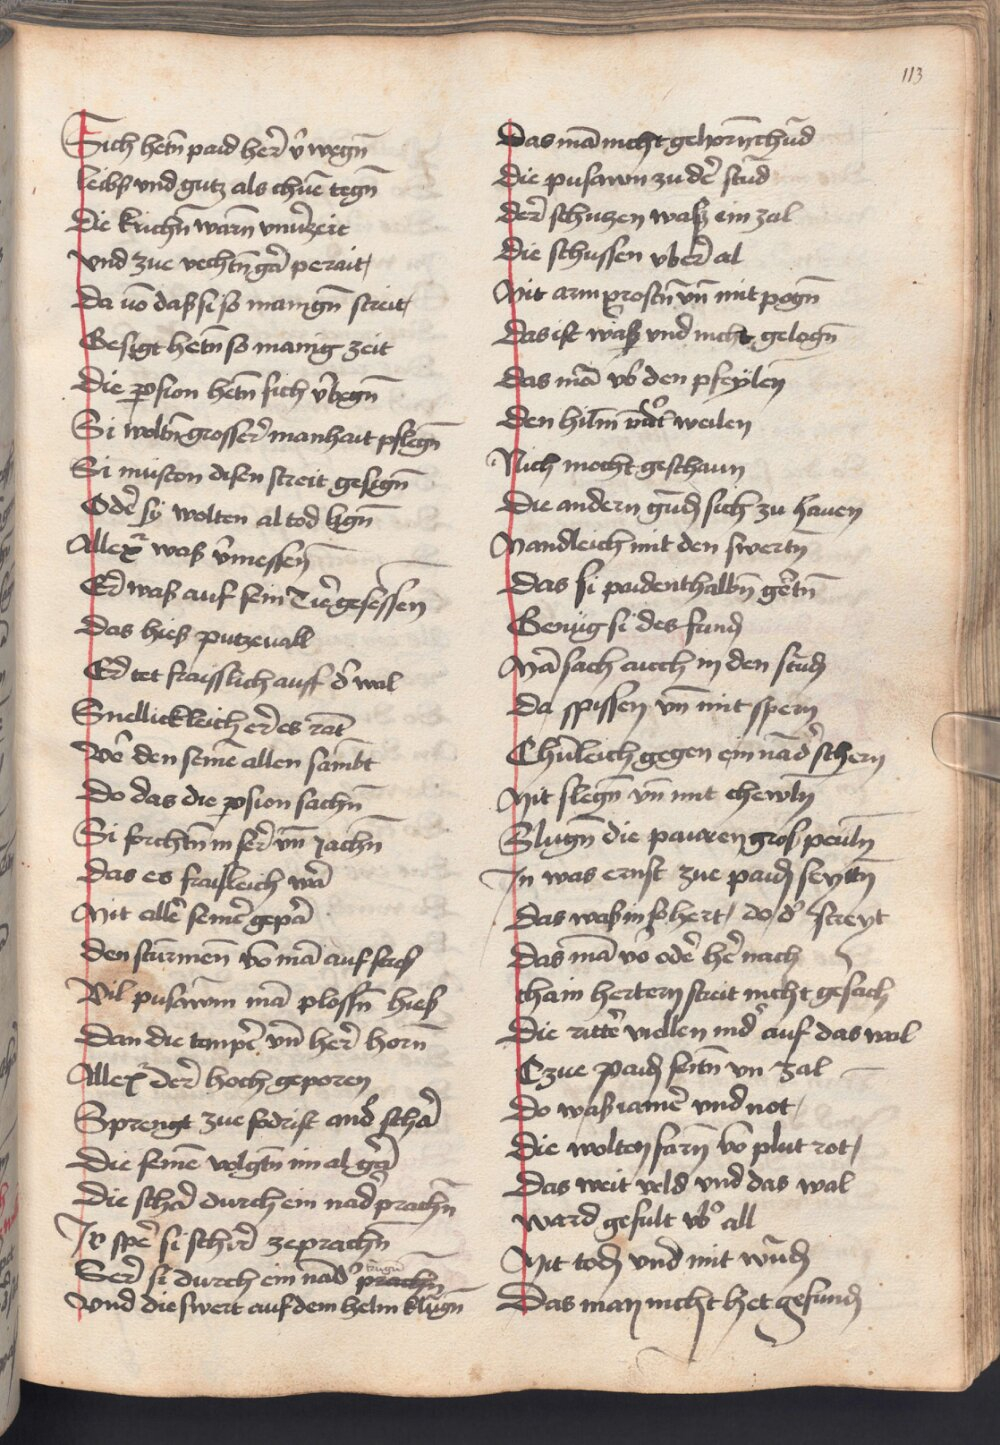 113
Sich hetn̄ paid her̄ v̄wegn̄
leibß vnd gutz als chūe tegn̄
Die kriechn̄ warn̄ vnv̄zeit
Vnd zue vechtn̄ gā perait
Da uō daß si so manign̄ streit
Gesigt hetn̄ so manig zeit
Die persion hetn̄ sich v̄begn̄
Si woltn̄ grosser̄ manhait pflegn̄
Si musten disen streit gesign̄
Oder̄ sy wolten al tod lign̄
Allex̄ waß v̄messen̄
Er waß auf sein Tir̄ gesessen
Das hieß putzeuall
Er tet fraisslich auff d̄ wal
Snellickleich er es rāt
Vō den seinē allen sambt
Do das die persion sachn̄
Si forchtn̄ in ser̄ vn̄ iachn̄
Das es fraisleich wā
Mit allē seinē gepā
Den sturmenn̄ vō mā auf stoß
Vil pusawm̄ mā plossn̄ hieß
Dan die tempē vn̄ her̄ horn̄
Allex̄ der̄ hoch geporen
Sprengt zue fodrist an d̄ schā
Die seinē volgtn̄ im al gā
Die schār durch ein nad̄ prachn̄
Ir sper̄ si schir̄ zeprachn̄
Ser̄ si durch ein nad̄ trugn̄ prachn̄
Vnd die swert auf dem helm klugn̄
Das mā nicht gehorn̄ chūd
Die pusawn zu der̄ stūd
Der̄ schutzen waß ein zal
Die schussen vber̄ al
Mit armprostn̄ vn̄ mit pogn̄
Das ist waß vnd nicht gelogn̄
Das mā vō den pfeylen
Den hilm̄ vnd̄ weilen
Nich mocht geschaun
Die andern gūdn sich zu hauen
Mandleich mit den swertn̄
Das si paidenthalbn̄ gertn̄
Genug si des fundn
Mā sach auch in den studn
Da spissen vn̄ mit spern
Chunleich gegen ein nad̄ schern
Mit slegn̄ vn̄ mit chewln̄
Slugn̄ die pauren groß peuln̄
In was ernst zue paidn seytn̄
Das waß in so hert do d̄ streyt
Das mā vō oder̄ her̄ nach
Chain hertern streit nicht gesach
Die ritter̄ viellen nid̄ auf das wal
Czue paidn seitn̄ vn zal
Do waß iamer̄ vnd not
Die wolten farn̄ vō plut rot
Das weit veld vnd das wal
Ward gefult vb̄ all
Mit todn vnd mit wūdn
Das man nicht het gefundn